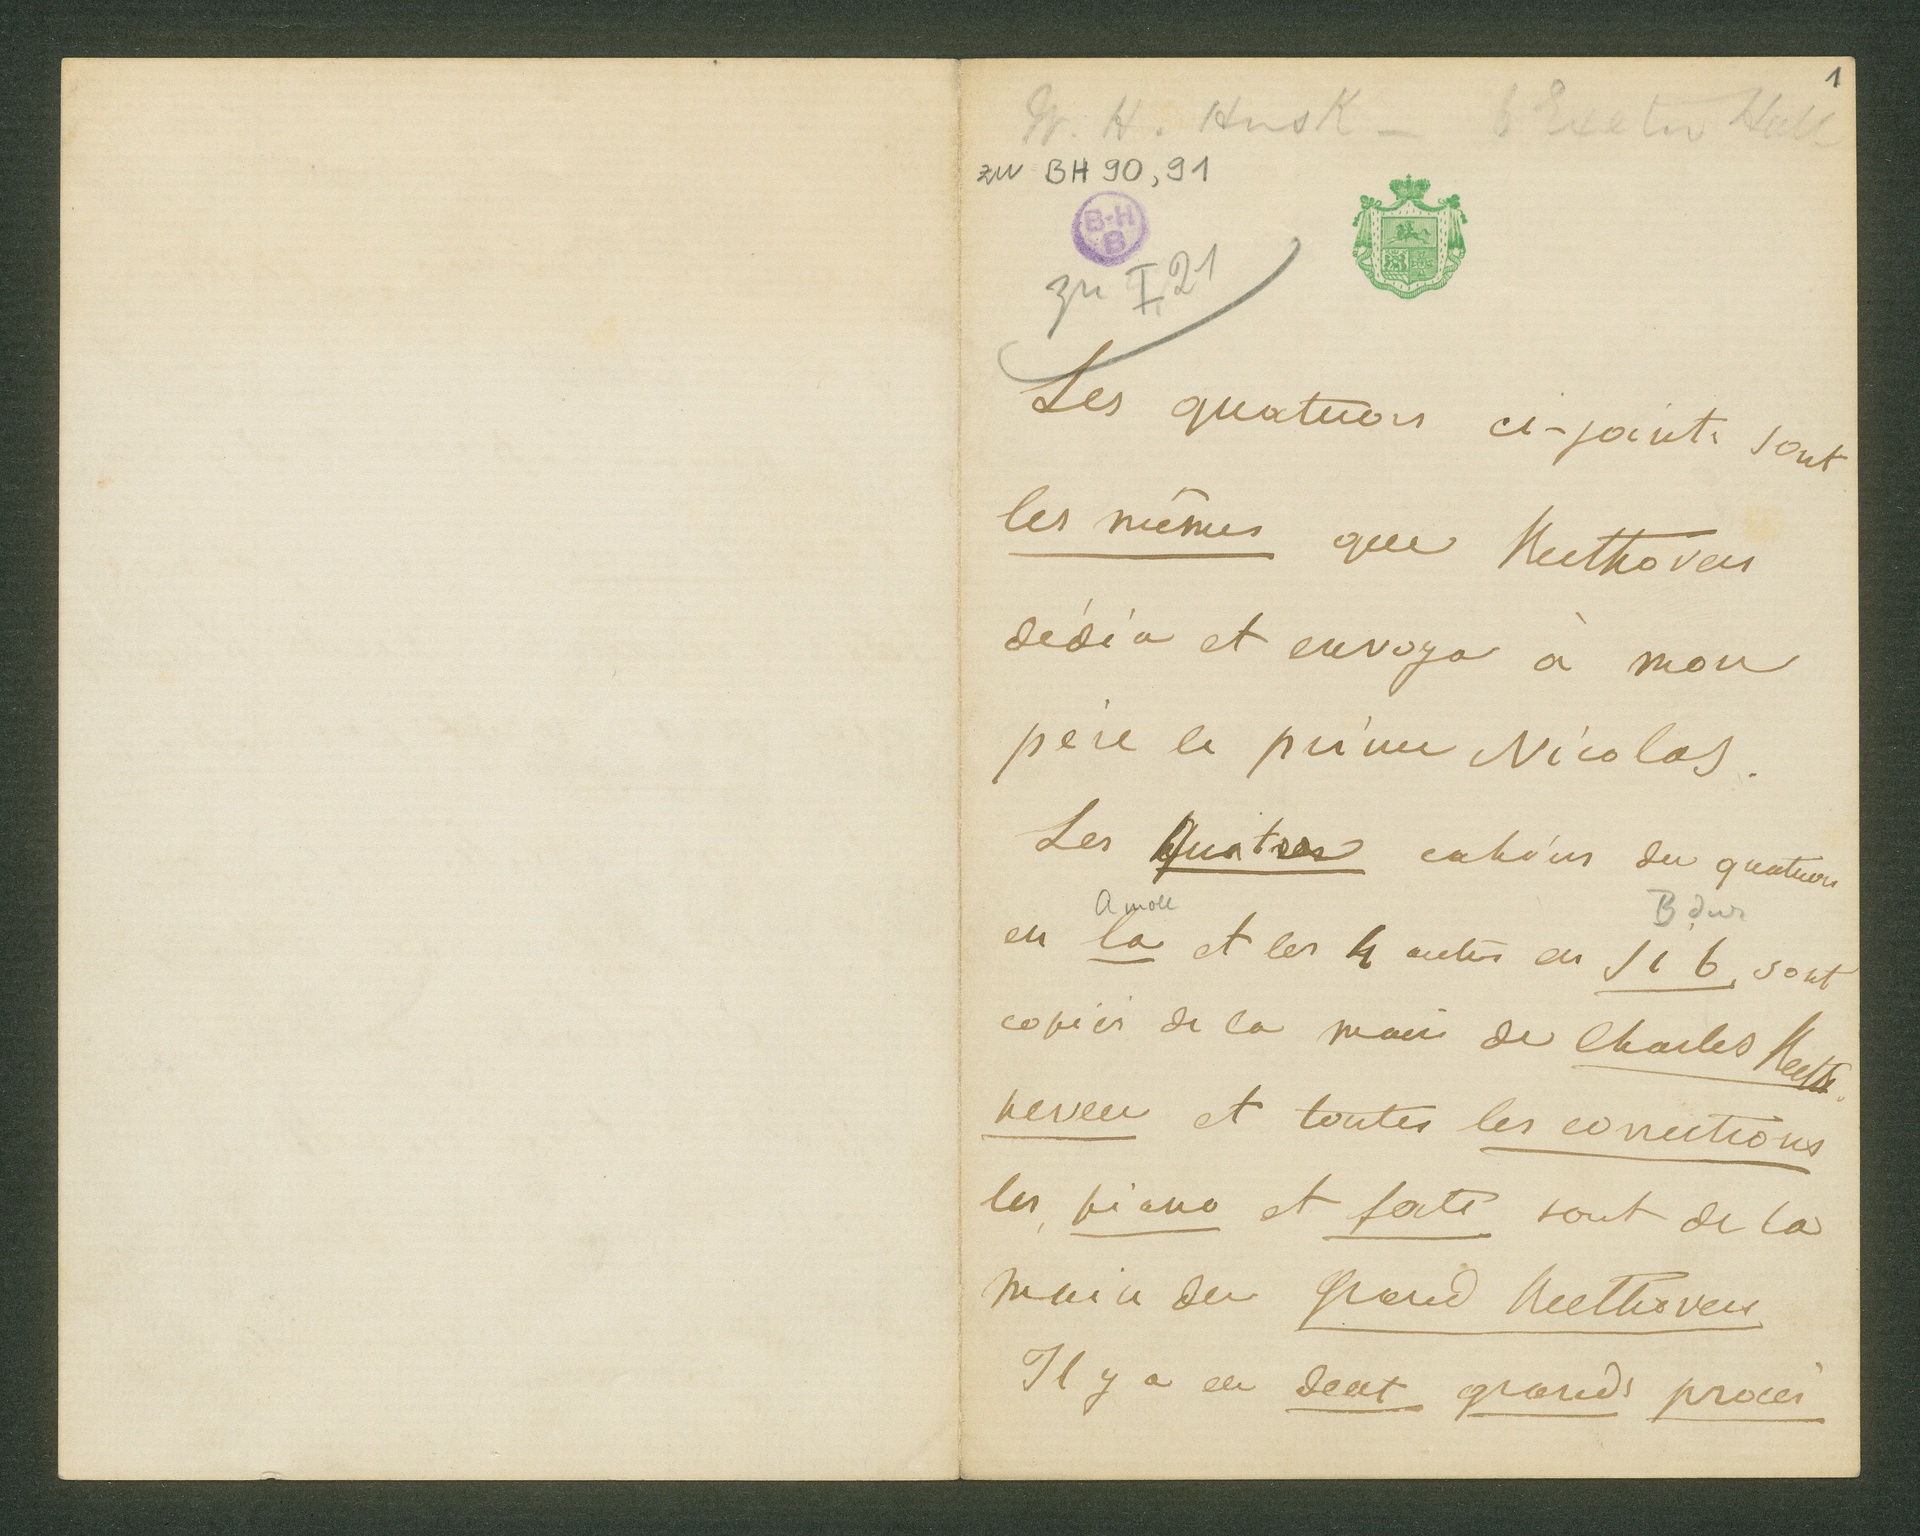 1
W. H. Husk – 6 Exeter Hall
zu BH 90, 91
B-H
B
zu I, 21
Les quatuors ci-joints sont
les mêmes que Beethoven
dédia et envoya à mon
père le prince Nicolas.
Les quatres cahiers du quatuor
A moll
B dur
en la et les 4 autres en si b, sont
copiés de la main de Charles Beeth.
neveu et toutes les corrections
les, piano et forte sont de la
main du grand Beethoven
Il y a eu deux grands procès